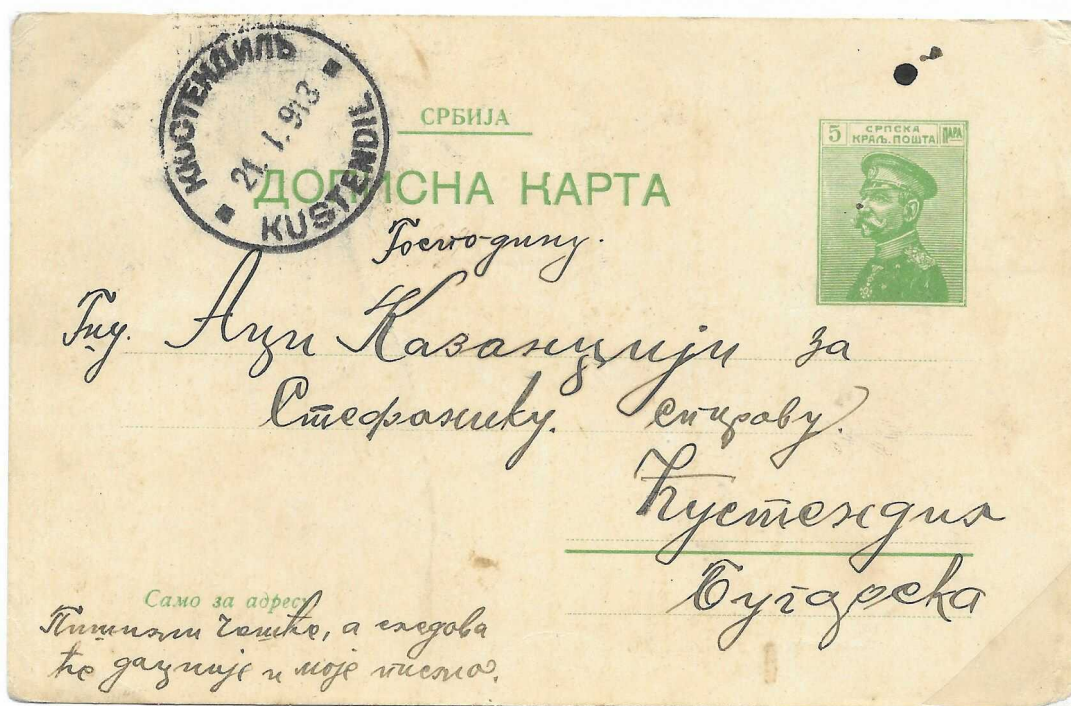 КЮСТЕНДИЛЪ
21. I. 913
KUSTENDIL
СРБИЈА
ДОПИСНА КАРТА
5 СРПСКА ПАРА
КРАЉ. ПОШТА
Господину.
Гну. Аци Казанџији за
Стефанику. спирову.
Ћустендил
Бугарска
Само за адресу
Пиши ми чешће, а следова
ће доцније и моје писмо.